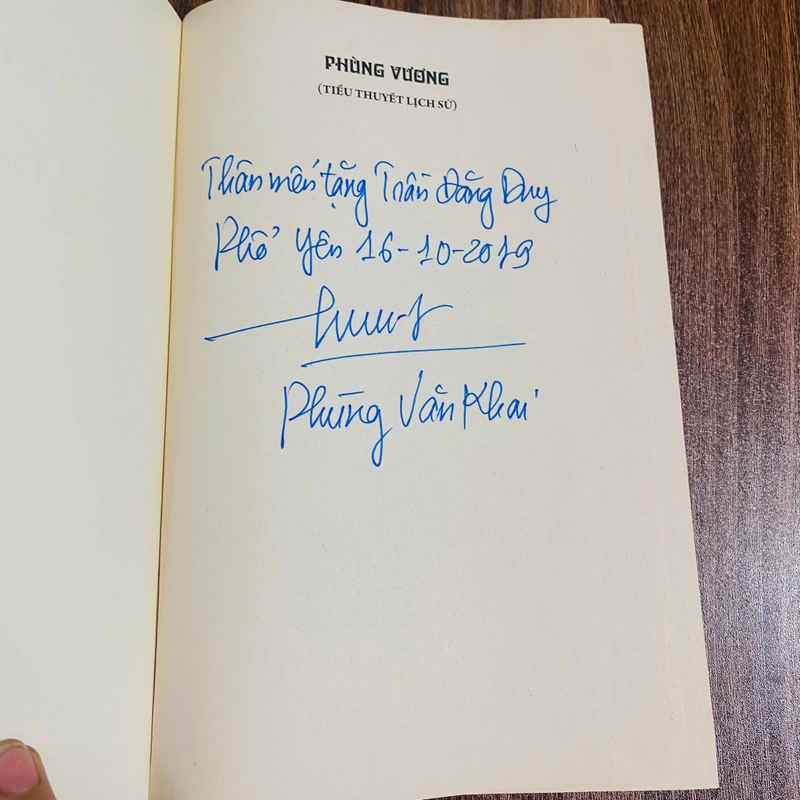 PHÙNG VƯƠNG
(TIỂU THUYẾT LỊCH SỬ)
Thân mến tặng Trần Đăng Duy
Phổ Yên 16-10-2019
Phùng Văn Khai